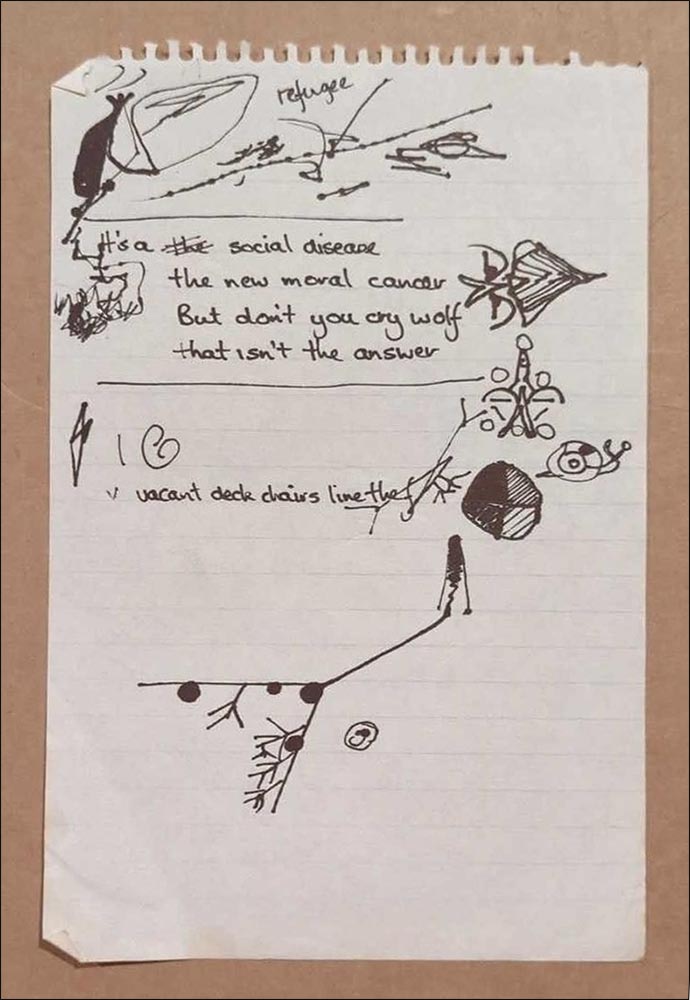 refugee
It's a the social disease
the new moral cancer
But don't you cry wolf
that isn't the answer
vacant deck chairs line the